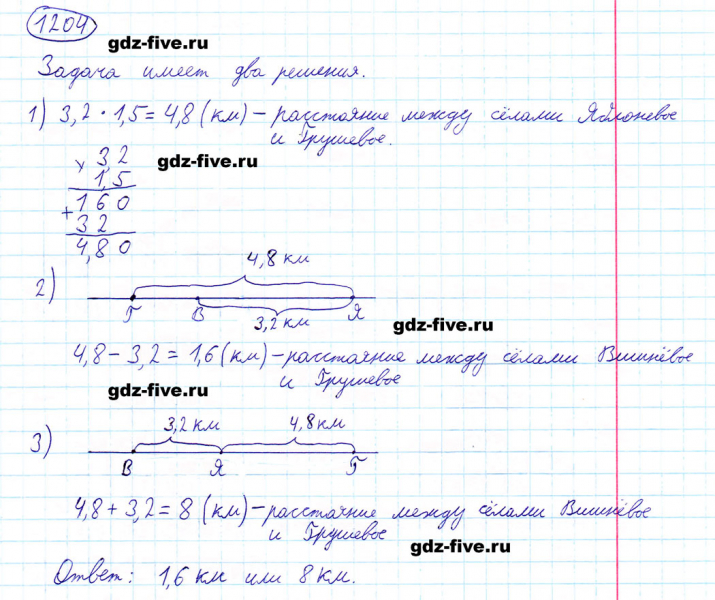 1204
gdz-five.ru
Задача имеет два решения.
1) 3,2 · 1,5 = 4,8 (км) – расстояние между сёлами Яблоневое
и Грушевое.
gdz-five.ru
× 3,2
1,5
+ 160
32
4,80
2)
4,8 км
Г В Я
3,2 км
gdz-five.ru
4,8 – 3,2 = 1,6 (км) – расстояние между сёлами Вишнёвое
и Грушевое
gdz-five.ru
3)
3,2 км 4,8 км
В Я Г
4,8 + 3,2 = 8 (км) – расстояние между сёлами Вишнёвое
и Грушевое
gdz-five.ru
Ответ: 1,6 км или 8 км.